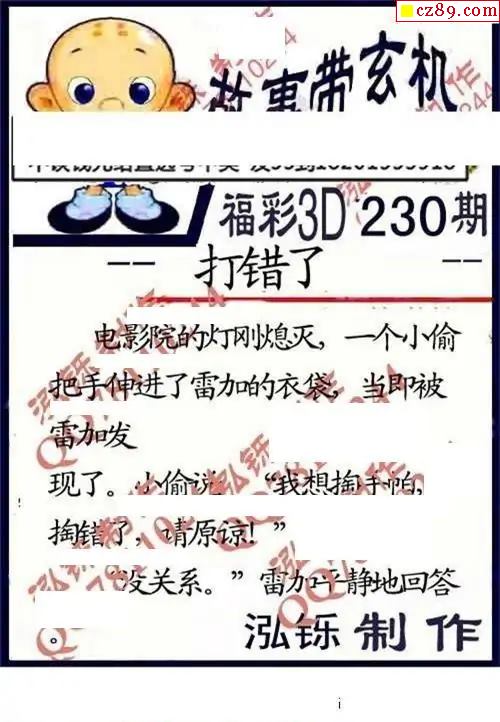 cz89.com
故事带玄机
福彩3D 230期
-- 打错了 --
电影院的灯刚熄灭，一个小偷
把手伸进了雷加的衣袋，当即被
雷加发
现了。小偷说 “我想掏手帕，
掏错了，请原谅！”
“没关系。”雷加平静地回答
。
泓铄制作
i